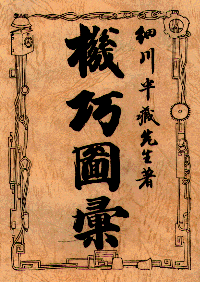 細川半蔵先生著
機巧圖彙